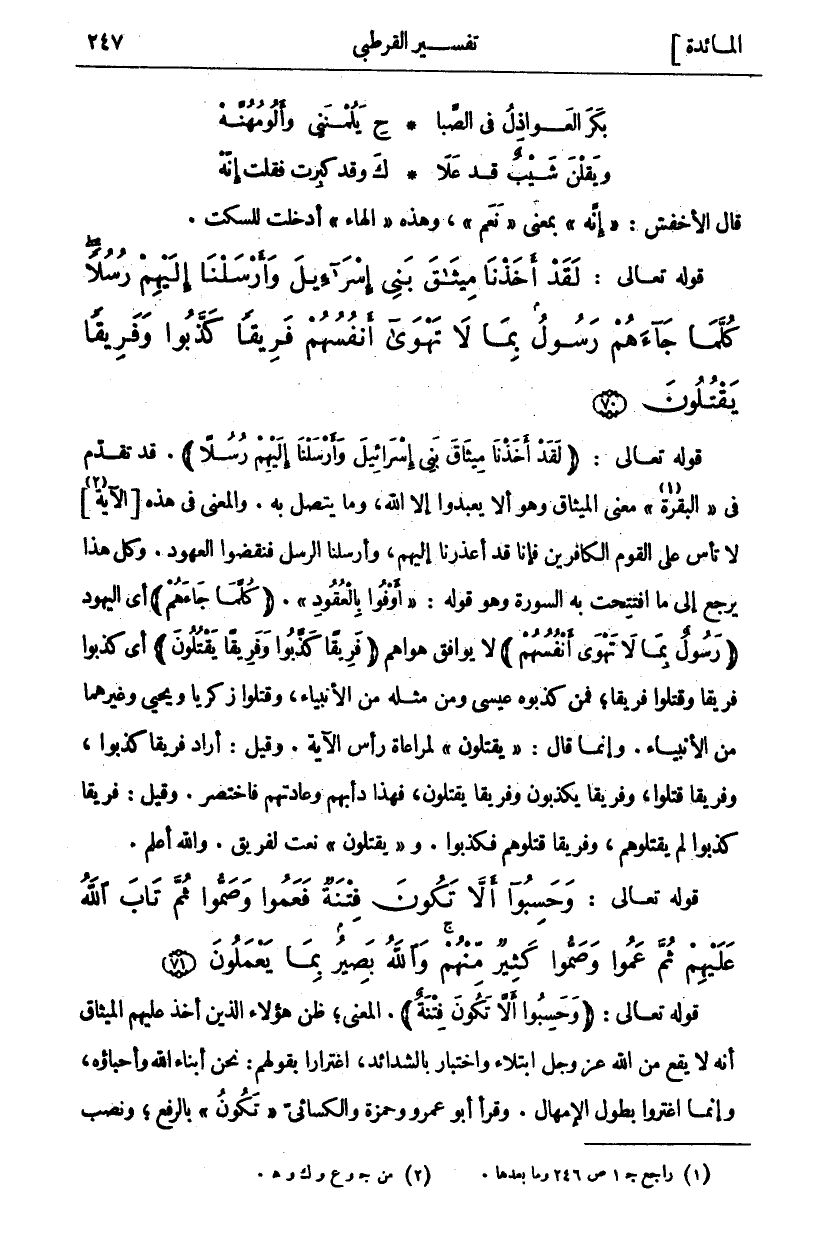 المائدة] تفسير القرطبي ٢٤٧
بَكَرَ العَواذِلُ فى الصَّبا * حِ يَلُمْنَنِي وأَلُومُهُنَّهْ
ويَقُلْنَ شَيْبٌ قد عَلَا * كَ وقد كبِرت فقلت إنّهْ
قال الأخفش : « إنَّه » بمعنى « نَعَم » ، وهذه « الهاء » أدخلت للسكت .
قوله تعالى : لَقَدْ أَخَذْنَا مِيثَٰقَ بَنِي إِسْرَآءِيلَ وَأَرْسَلْنَا إِلَيْهِمْ رُسُلًا ۖ
كُلَّمَا جَآءَهُمْ رَسُولُۢ بِمَا لَا تَهْوَىٰٓ أَنفُسُهُمْ فَرِيقًا كَذَّبُوا وَفَرِيقًا
يَقْتُلُونَ ٧٠
قوله تعالى : ﴿ لَقَدْ أَخَذْنَا مِيثَاقَ بَنِي إِسْرَائِيلَ وَأَرْسَلْنَا إِلَيْهِمْ رُسُلًا ﴾ . قد تقدّم
فى « البقرة (١) » معنى الميثاق وهو ألا يعبدوا إلا الله، وما يتصل به . والمعنى فى هذه [ الآية (٢) ]
لا تأس على القوم الكافرين فإنا قد أعذرنا إليهم، وأرسلنا الرسل فنقضوا العهود . وكل هذا
يرجع إلى ما افتتحت به السورة وهو قوله : « أَوْفُوا بِالْعُقُودِ » . ﴿ كُلَّمَا جَاءَهُمْ ﴾ أى اليهود
﴿ رَسُولٌ بِمَا لَا تَهْوَى أَنْفُسُهُمْ ﴾ لا يوافق هواهم ﴿ فَرِيقًا كَذَّبُوا وَفَرِيقًا يَقْتُلُونَ ﴾ أى كذبوا
فريقا وقتلوا فريقا؛ فمن كذبوه عيسى ومن مثله من الأنبياء، وقتلوا زكريا ويحيى وغيرهما
من الأنبياء . وإنما قال : « يقتلون » لمراعاة رأس الآية . وقيل : أراد فريقا كذبوا ،
وفريقا قتلوا، وفريقا يكذبون وفريقا يقتلون، فهذا دأبهم وعادتهم فاختصر . وقيل : فريقا
كذبوا لم يقتلوهم ، وفريقا قتلوهم فكذبوا . و « يقتلون » نعت لفريق . والله أعلم .
قوله تعالى : وَحَسِبُوٓا أَلَّا تَكُونَ فِتْنَةٌ فَعَمُوا وَصَمُّوا ثُمَّ تَابَ ٱللَّهُ
عَلَيْهِمْ ثُمَّ عَمُوا وَصَمُّوا كَثِيرٌ مِّنْهُمْ ۚ وَٱللَّهُ بَصِيرُۢ بِمَا يَعْمَلُونَ ٧١
قوله تعالى : ﴿ وَحَسِبُوا أَلَّا تَكُونَ فِتْنَةٌ ﴾ . المعنى؛ ظن هؤلاء الذين أخذ عليهم الميثاق
أنه لا يقع من الله عز وجل ابتلاء واختبار بالشدائد، اغترارا بقولهم : نحن أبناء الله وأحباؤه،
وإنما اغتروا بطول الإمهال . وقرأ أبو عمرو وحمزة والكسائىّ « تَكُونُ » بالرفع ؛ ونصب
(١) راجع جـ ١ ص ٢٤٦ وما بعدها . (٢) من جـ و ع و ك و هـ .